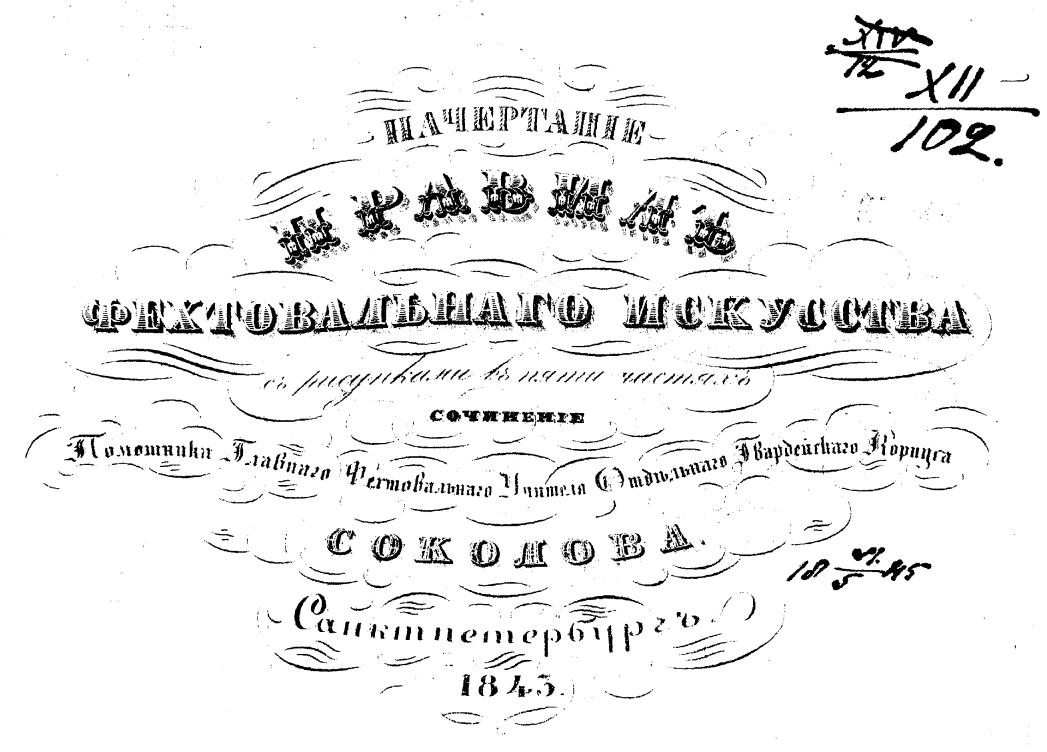 XIV
12
XII
102.
НАЧЕРТАНІЕ
ПРАВИЛЪ
ФЕХТОВАЛЬНАГО ИСКУССТВА
съ рисунками въ пяти частяхъ
СОЧИНЕНІЕ
Помощника Главнаго Фехтовальнаго Учителя Отдѣльнаго Гвардейскаго Корпуса
СОКОЛОВА.
18 5 45
Санктпетербургъ
1843.